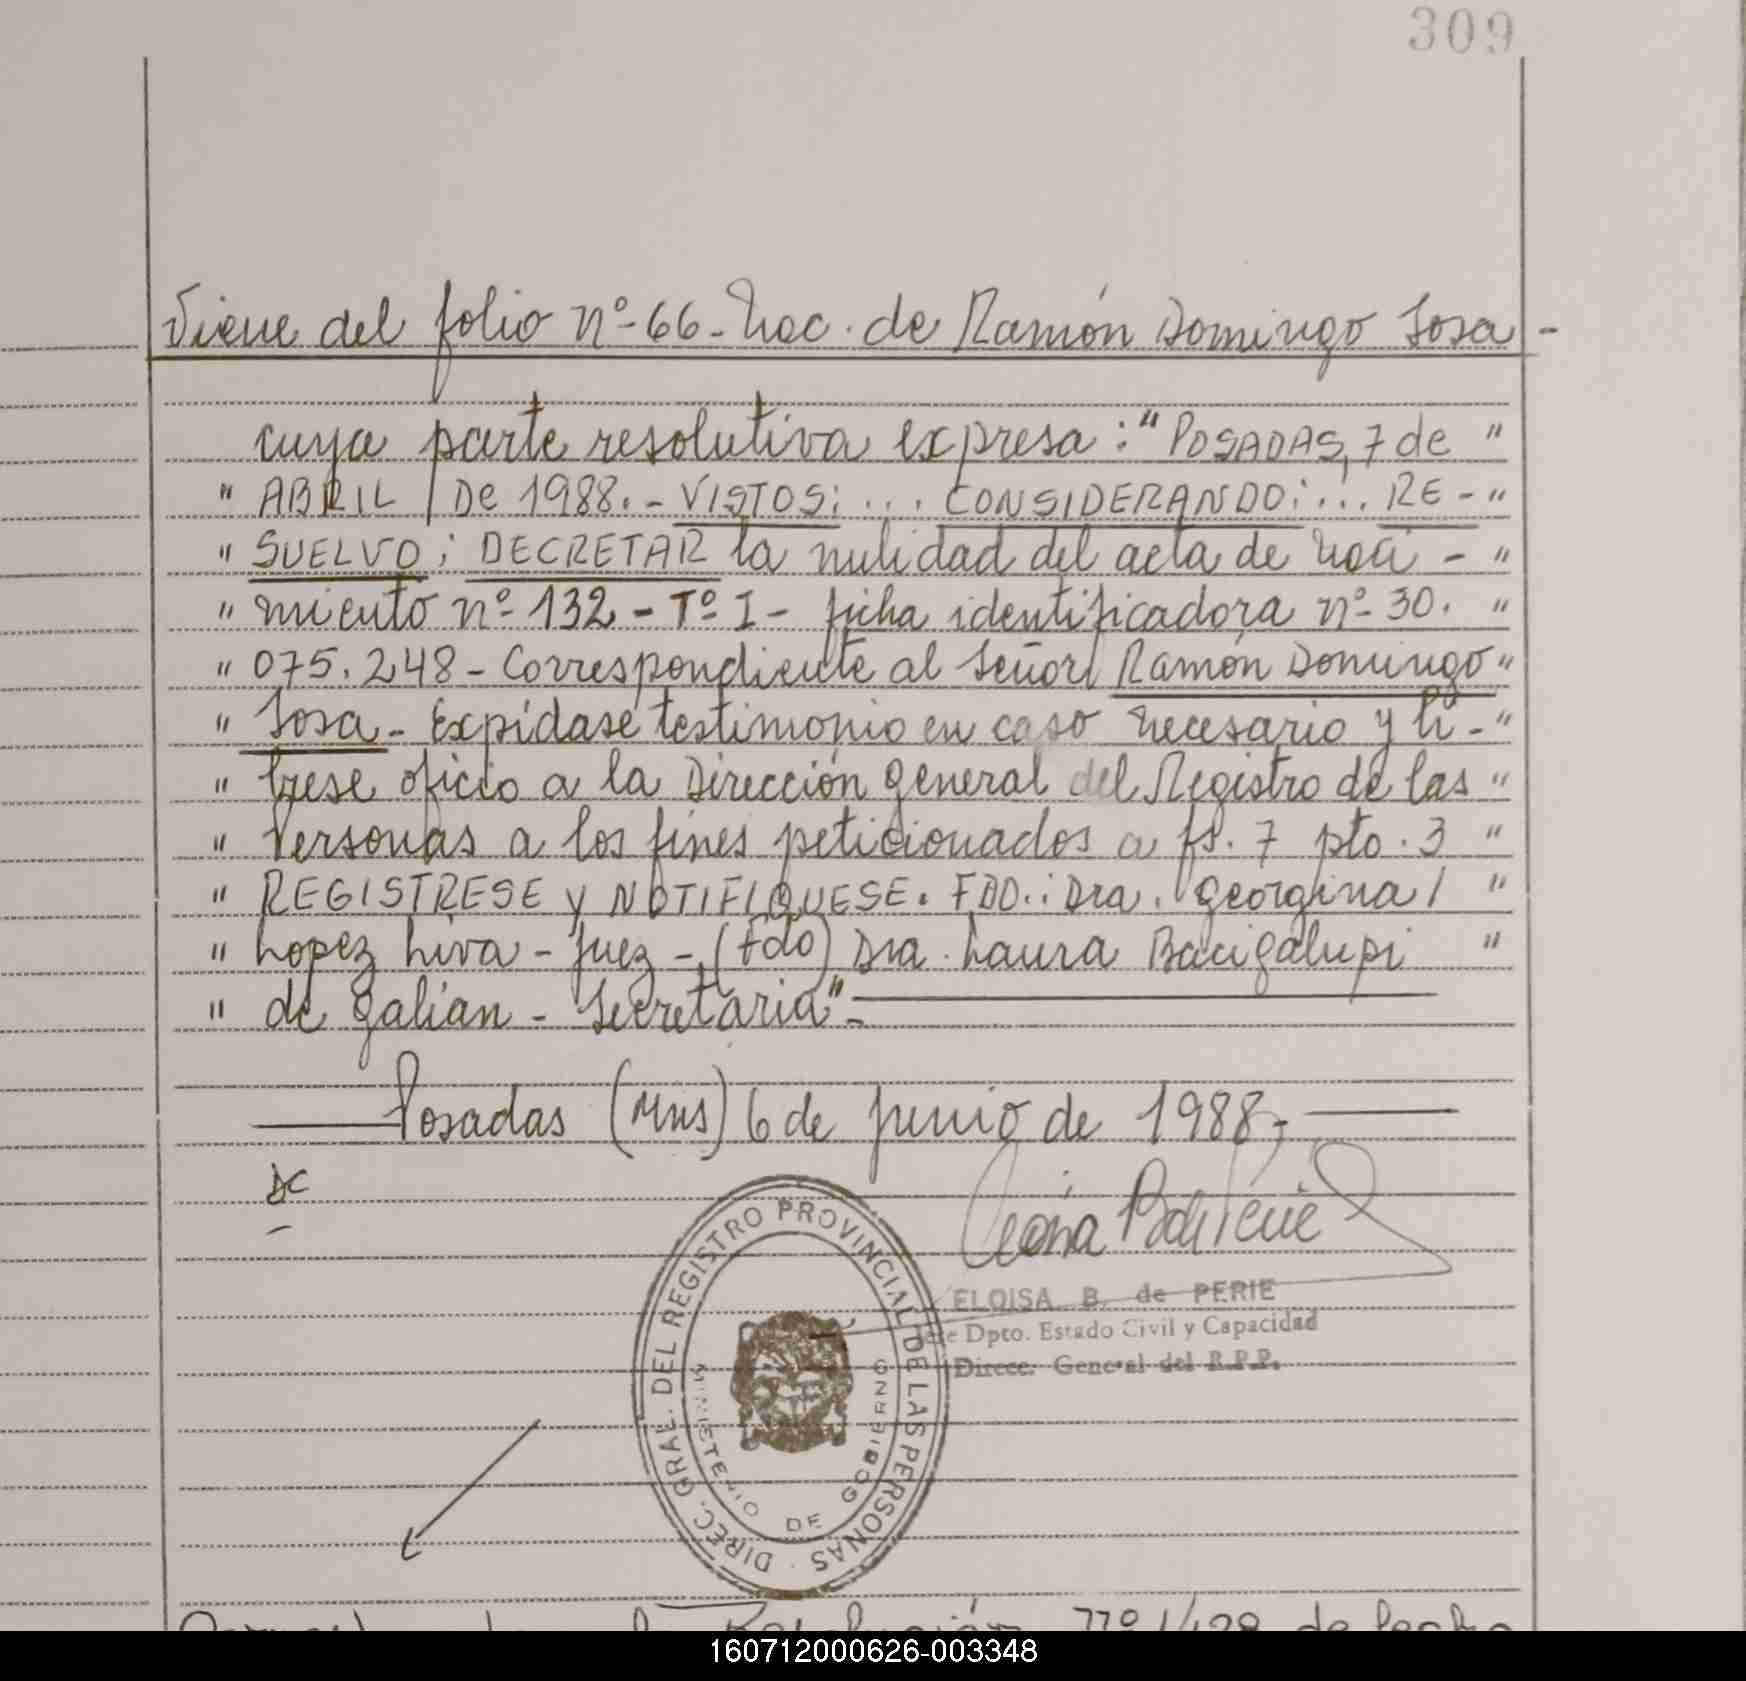 309
Viene del folio nº-66- Nac. de Ramón Domingo Sosa -
cuya parte resolutiva expresa: "POSADAS, 7 de "
" ABRIL / De 1988.- VISTOS: ... CONSIDERANDO: ... RE - "
" SUELVO: DECRETAR la nulidad del acta de naci - "
" miento nº- 132 - Tº I - ficha identificadora nº- 30. "
" 075.248 - Correspondiente al Señor Ramón Domingo "
" Sosa - Expídase testimonio en caso necesario y lí - "
" brese oficio a la Dirección General del Registro de las "
" Personas a los fines peticionados a fs. 7 pto. 3 "
" REGISTRESE y NOTIFIQUESE. FDO.: Dra. Georgina / "
" Lopez Liva - Juez -, (Fdo) Dra. Laura Bacigalupi "
" de Galián - Secretaria" -
Posadas (Mns) 6 de Junio de 1988,-
DIREC. GRAL. DEL REGISTRO PROVINCIAL DE LAS PERSONAS
MINISTERIO DE GOBIERNO
ELOISA B. de PERIE
Jefe Dpto. Estado Civil y Capacidad
Direcc. General del R.P.P.
Resolución nº 1/428 de fecha
160712000626-003348